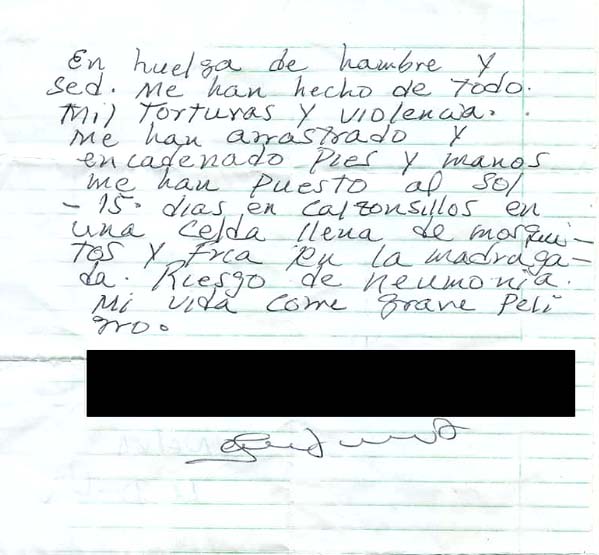 En huelga de hambre y
sed. Me han hecho de todo.
Mil Torturas y violencia.
me han arrastrado y
encadenado Pies y manos
me han puesto al sol
- 15. dias en calzonsillos en
una celda llena de mosqui-
tos y fria en la madraga-
da. Riesgo de neumonia.
Mi vida corre grave peli
gro.